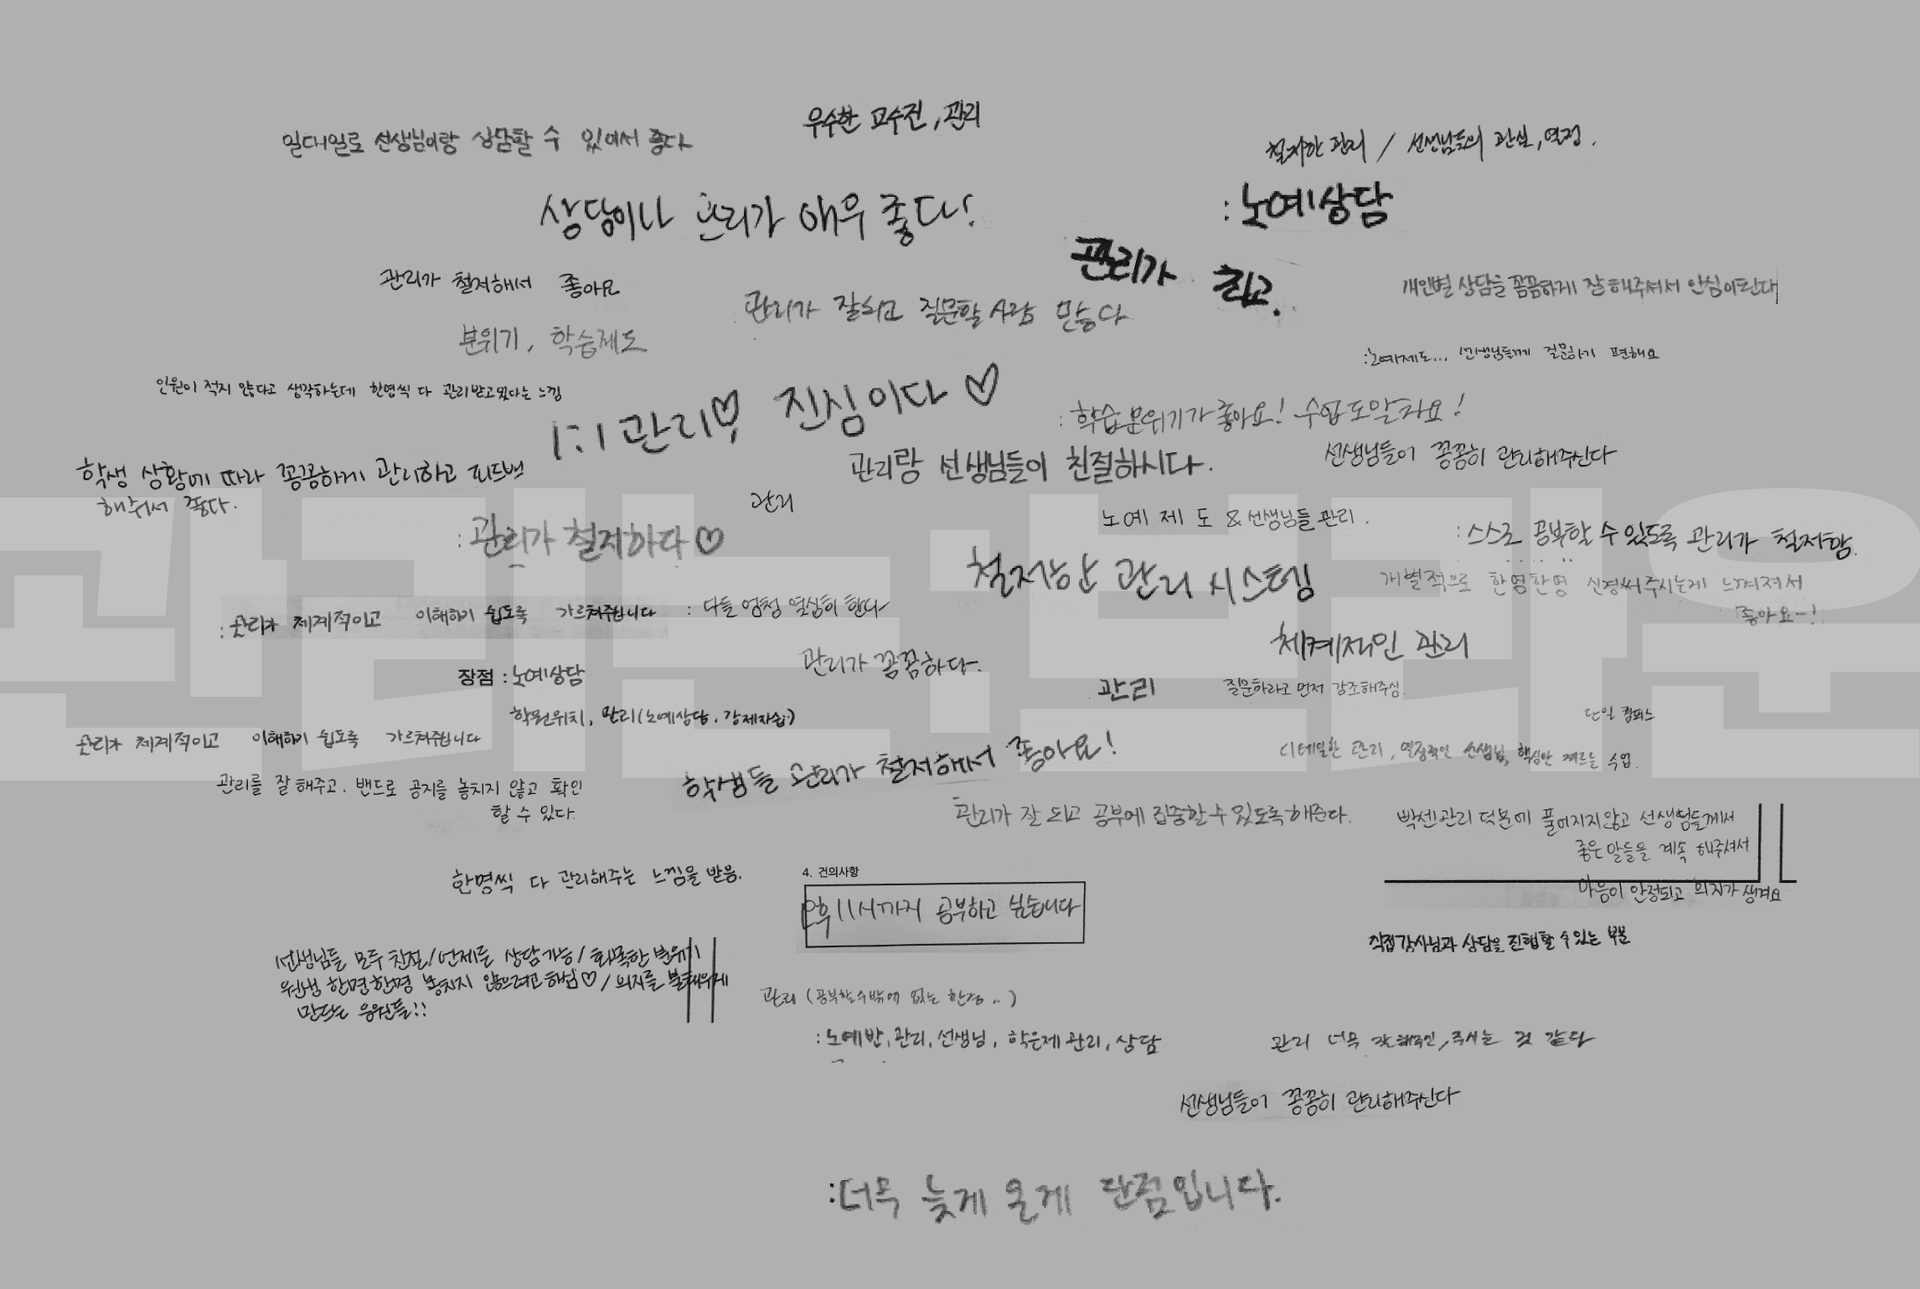 우수한 교수진, 관리
일대일로 선생님이랑 상담할 수 있어서 좋다
철저한 관리 / 선생님들의 관심, 열정.
상담이나 관리가 매우 좋다!
: 노예상담
관리가 최고.
관리가 철저해서 좋아요
개인별 상담을 꼼꼼하게 잘 해주셔서 안심이된다
관리가 잘되고 질문할 사람 많다
분위기, 학습제도
:노예제도... 선생님들께 질문하기 편해요
인원이 적지 않다고 생각하는데 한명씩 다 관리받고있다는 느낌
1:1 관리♡ 진심이다 ♡
: 학습분위기가 좋아요! 수업도알차요!
관리랑 선생님들이 친절하시다.
선생님들이 꼼꼼히 관리해주신다
학생 상황에 따라 꼼꼼하게 관리하고 피드백
해줘서 좋다.
관리
관리는 보라운
: 관리가 철저하다♡
노예 제도 & 선생님들 관리.
: 스스로 공부할 수 있도록 관리가 철저함.
철저한 관리 시스템
개별적으로 한명한명 신경써주시는게 느껴져서
좋아요~!
: 관리가 체계적이고 이해하기 쉽도록 가르쳐주십니다
: 다들 엄청 열심히 한다
체계적인 관리
관리가 꼼꼼하다.
장점 : 노예상담
관리
질문하라고 먼저 강조해주심.
학원위치, 관리(노예상담, 강제자습)
단일 캠퍼스
관리가 체계적이고 이해하기 쉽도록 가르쳐주십니다
학생들 관리가 철저해서 좋아요!
디테일한 관리, 열정적인 선생님, 핵심만 찌르는 수업.
관리를 잘 해주고. 밴드로 공지를 놓치지 않고 확인
할 수 있다.
관리가 잘 되고 공부에 집중할수 있도록해준다.
빡센관리 덕분에 풀어지지않고 선생님들께서
좋은 말들을 계속 해주셔서
마음이 안정되고 의지가 생겨요
한명씩 다 관리해주는 느낌을 받음.
4. 건의사항
오후 11시까지 공부하고 싶습니다
직접강사님과 상담을 진행할 수 있는 부분
선생님들 모두 친절/언제든 상담가능/화목한 분위기
원생 한명한명 놓치지 않으려고 해줌♡/의지를 불태우게
만드는 응원들!!
관리 (공부할수밖에 없는 환경..)
: 노예반, 관리, 선생님, 학은제 관리, 상담
관리 너무 잘 해주시는 것 같다
선생님들이 꼼꼼히 관리해주신다
:너무 늦게 온게 단점입니다.